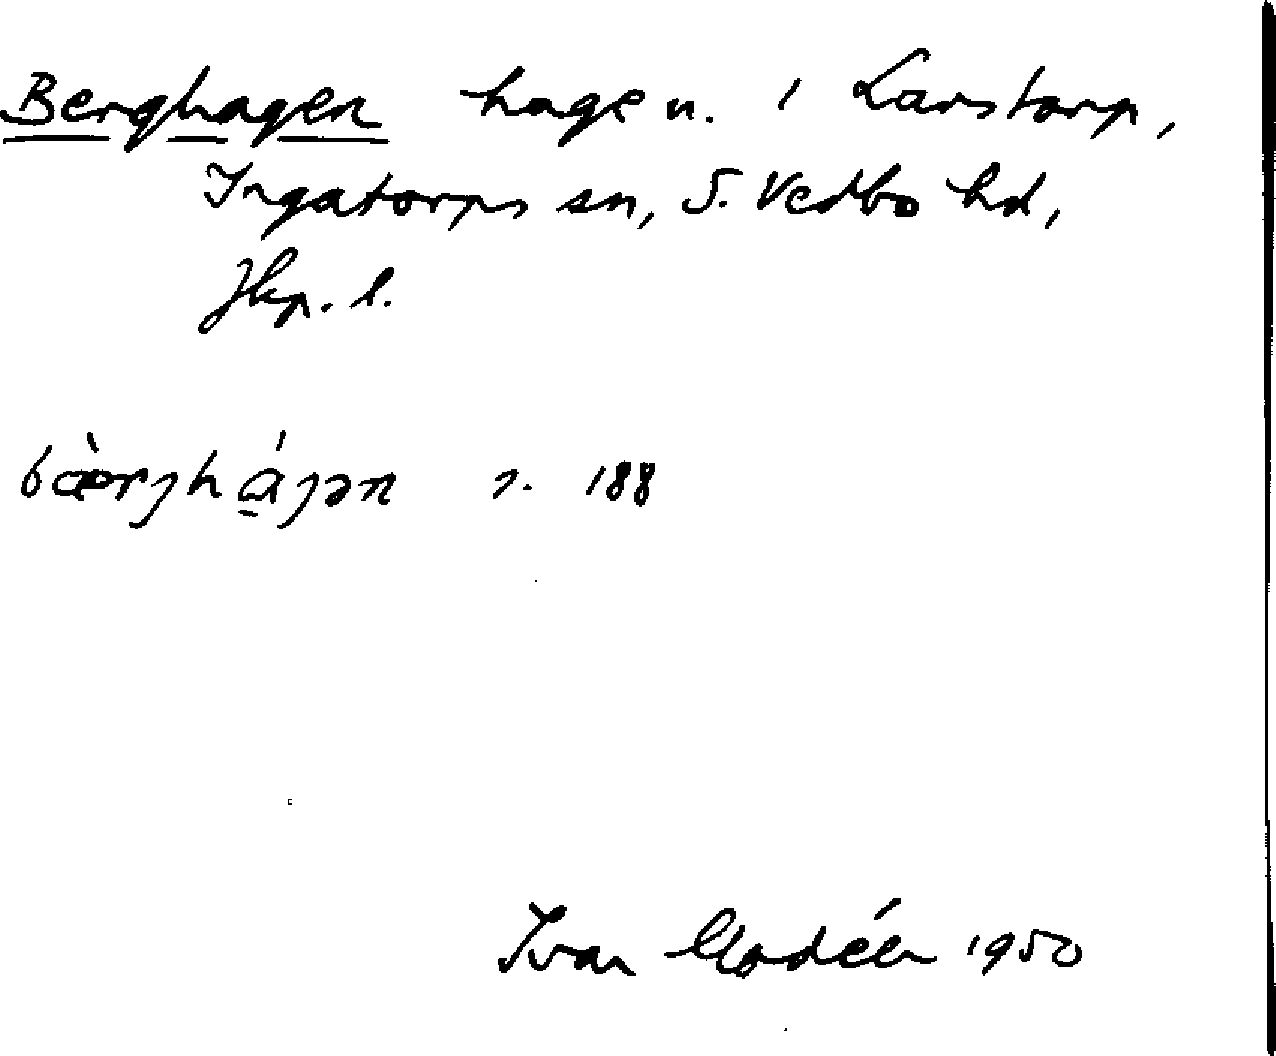 Berghagen hage n. i Larstorp,
Ingatorps sn, S. Vedbo hd,
Jkp. l.
bæ̀rjhɑ́jən s. 188
Ivar Modéer 1950